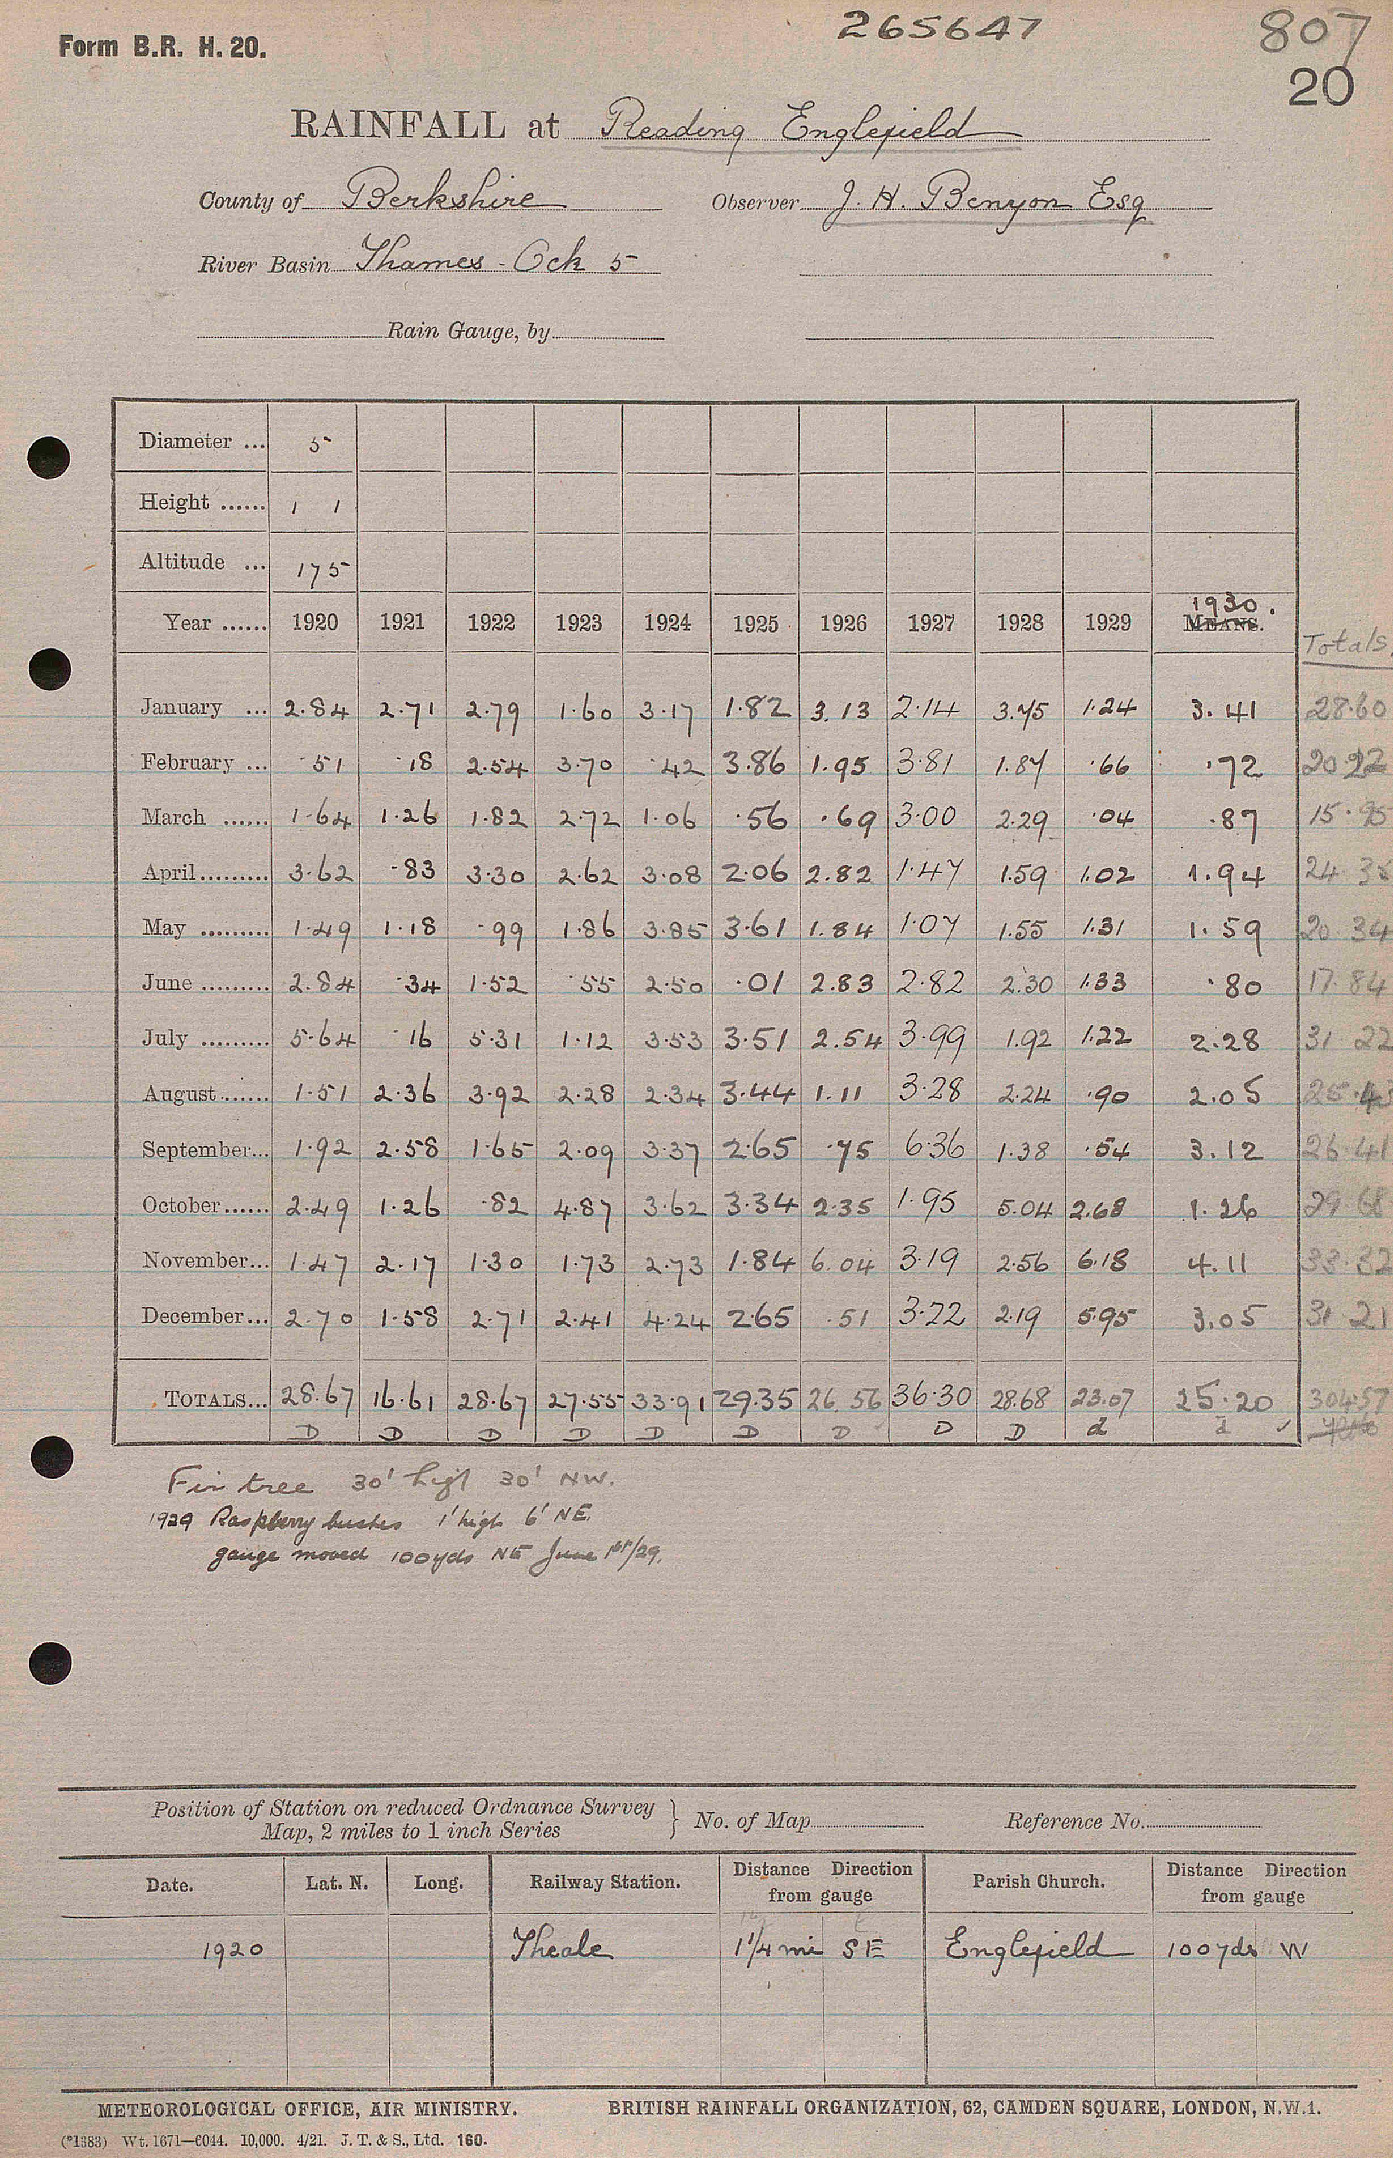 265647
807
Form B.R. H. 20.
20
RAINFALL at Reading Englefield
County of Berkshire Observer J. H. Benyon Esq
River Basin Thames - Ock 5
Rain Gauge, by
Diameter ... 5
Height ...... 1 1
Altitude ... 175
Year ...... 1920 1921 1922 1923 1924 1925 1926 1927 1928 1929 1930. MEANS. Totals.
January ... 2.84 2.71 2.79 1.60 3.17 1.82 3.13 2.14 3.75 1.24 3.41 28.60
February ... .51 .18 2.54 3.70 .42 3.86 1.95 3.81 1.87 .66 .72 20.22
March ...... 1.64 1.26 1.82 2.72 1.06 .56 .69 3.00 2.29 .04 .87 15.95
April......... 3.62 .83 3.30 2.62 3.08 2.06 2.82 1.47 1.59 1.02 1.94 24.35
May ......... 1.49 1.18 .99 1.86 3.85 3.61 1.84 1.07 1.55 1.31 1.59 20.34
June ......... 2.84 .34 1.52 .55 2.50 .01 2.83 2.82 2.30 1.33 .80 17.84
July ......... 5.64 .16 5.31 1.12 3.53 3.51 2.54 3.99 1.92 1.22 2.28 31.22
August....... 1.51 2.36 3.92 2.28 2.34 3.44 1.11 3.28 2.24 .90 2.05 25.43
September... 1.92 2.58 1.65 2.09 3.37 2.65 .75 6.36 1.38 .54 3.12 26.41
October...... 2.49 1.26 .82 4.87 3.62 3.34 2.35 1.95 5.04 2.68 1.26 29.68
November... 1.47 2.17 1.30 1.73 2.73 1.84 6.04 3.19 2.56 6.18 4.11 33.32
December... 2.70 1.58 2.71 2.41 4.24 2.65 .51 3.22 2.19 5.95 3.05 31.21
TOTALS... 28.67 16.61 28.67 27.55 33.91 29.35 26.56 36.30 28.68 23.07 25.20 304.57
D D D D D D D D D d d ✓
Fir tree 30' high 30' NW.
1929 Raspberry bushes 1' high 6' NE.
gauge moved 100yds NE June 1st/29.
Position of Station on reduced Ordnance Survey
Map, 2 miles to 1 inch Series } No. of Map Reference No.
Date. Lat. N. Long. Railway Station. Distance Direction from gauge Parish Church. Distance Direction from gauge
1920 Theale 1 1/4 mi SE Englefield 100yds W
METEOROLOGICAL OFFICE, AIR MINISTRY. BRITISH RAINFALL ORGANIZATION, 62, CAMDEN SQUARE, LONDON, N.W.1.
(*1383) Wt. 1671—6044. 10,000. 4/21. J. T. & S., Ltd. 160.